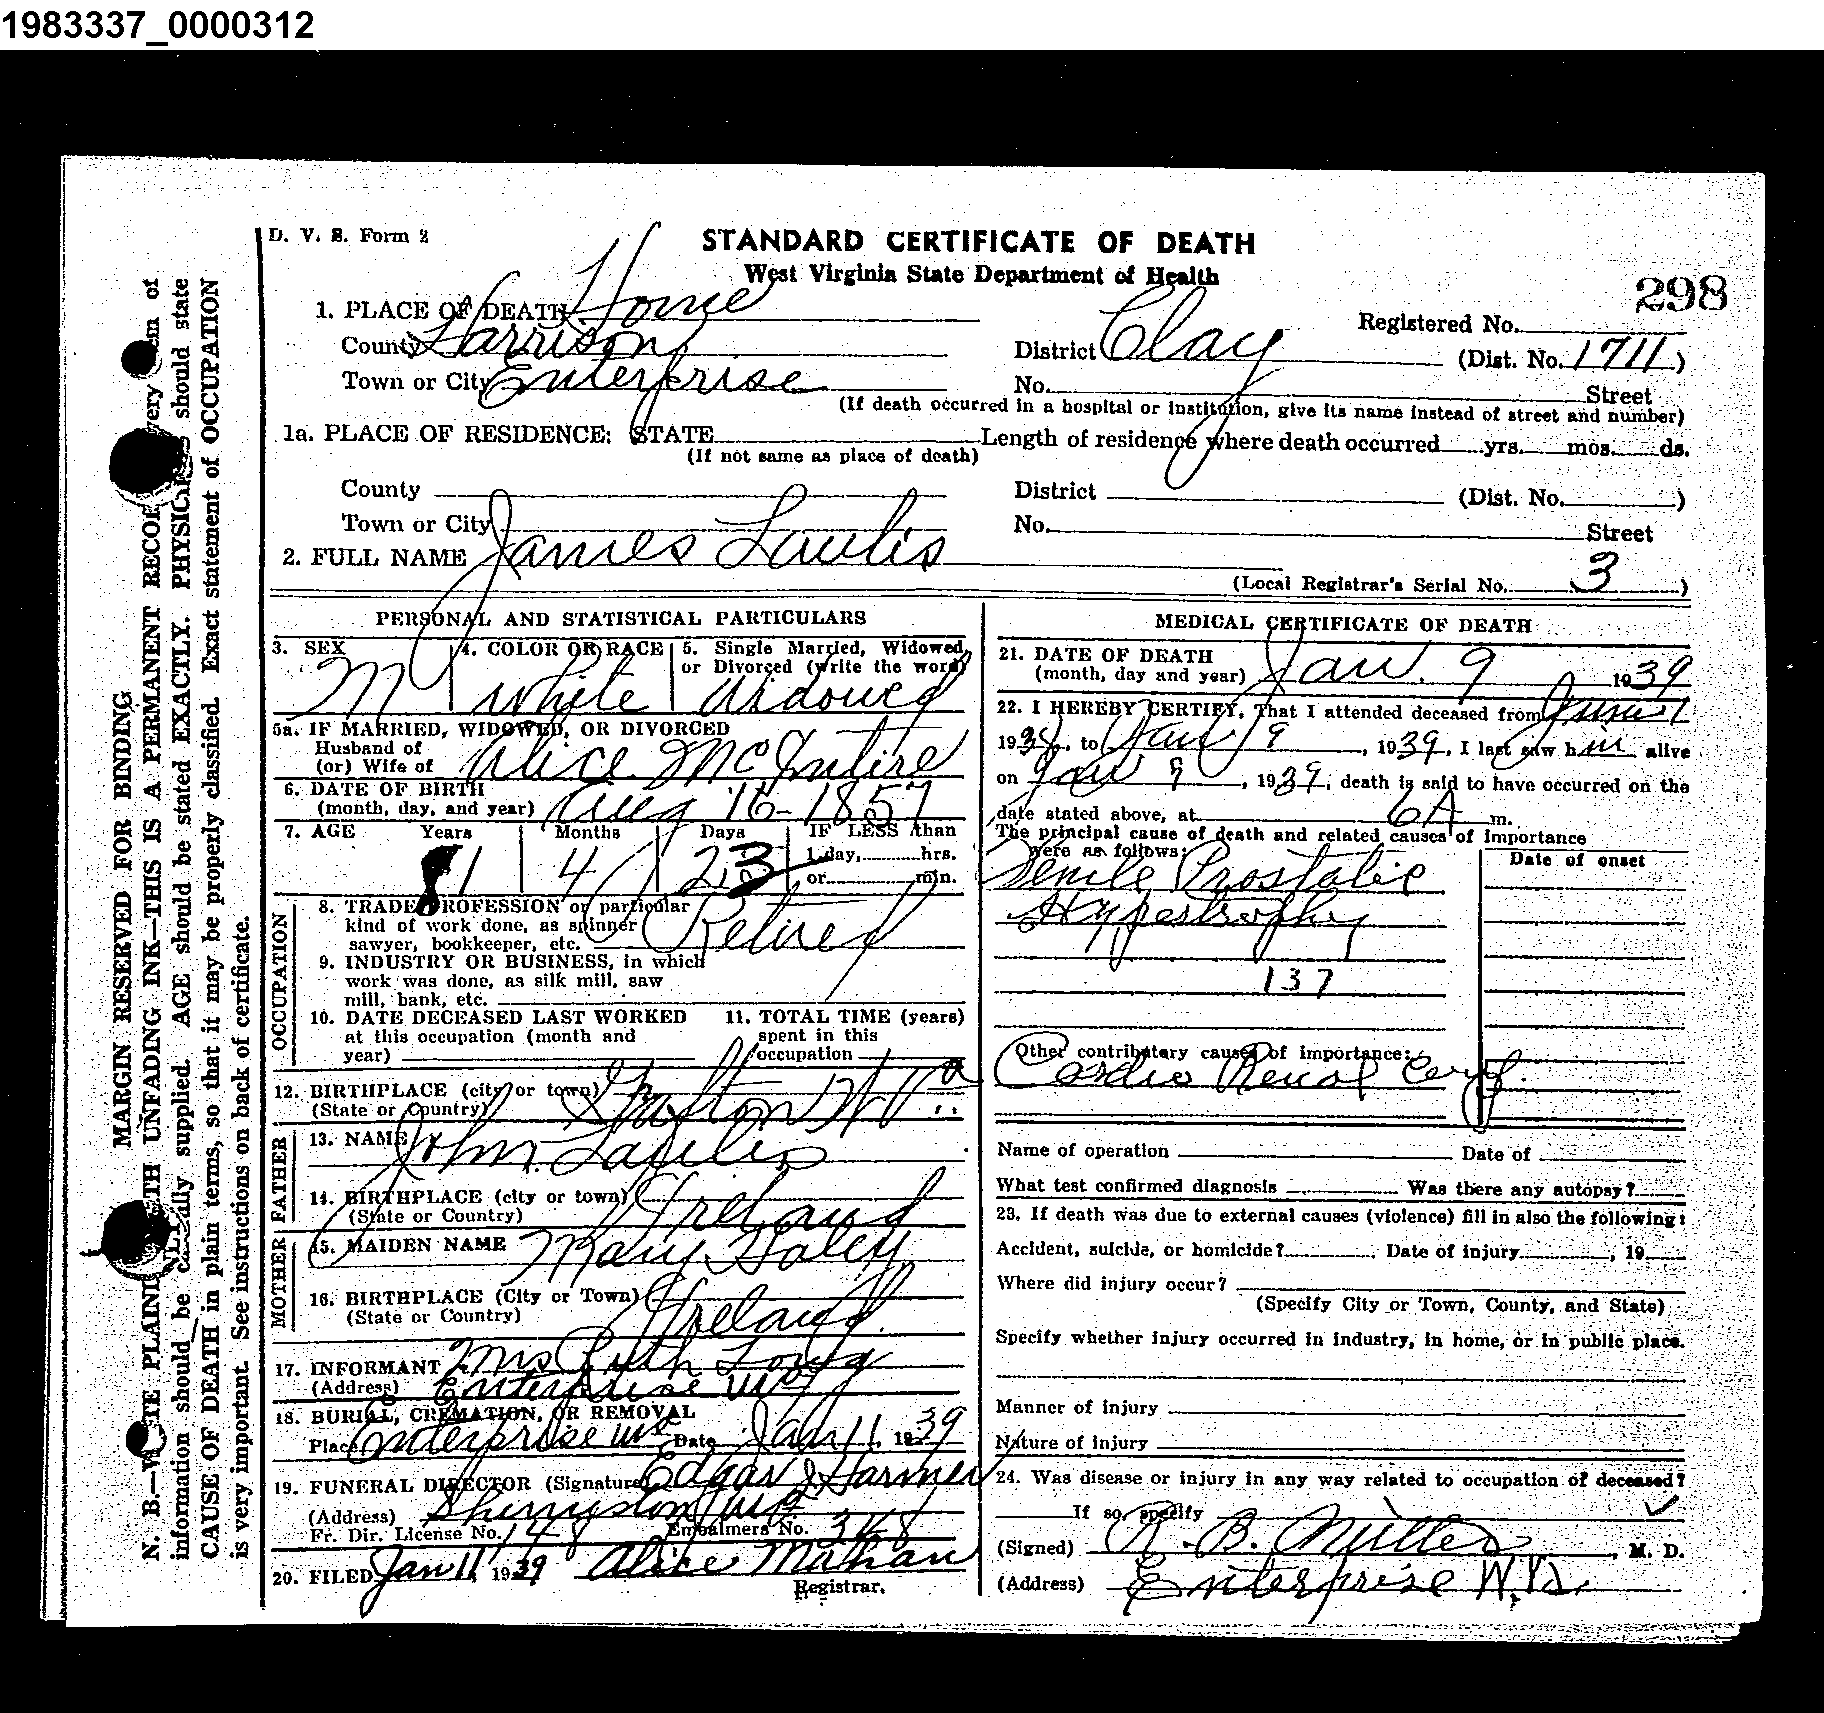 1983337_0000312
D. V. S. Form 2
STANDARD CERTIFICATE OF DEATH
West Virginia State Department of Health
298
1. PLACE OF DEATH Home
Registered No.
County Harrison
District Clay (Dist. No. 1711)
Town or City Enterprise
No. Street
(If death occurred in a hospital or institution, give its name instead of street and number)
1a. PLACE OF RESIDENCE: STATE
Length of residence where death occurred yrs. mos. ds.
(If not same as place of death)
County
District (Dist. No. )
Town or City
No. Street
2. FULL NAME James Lawlis
(Local Registrar's Serial No. 3 )
PERSONAL AND STATISTICAL PARTICULARS
3. SEX M
4. COLOR OR RACE White
5. Single Married, Widowed, or Divorced (write the word) Widowed
5a. IF MARRIED, WIDOWED, OR DIVORCED
Husband of
(or) Wife of Alice McIntire
6. DATE OF BIRTH
(month, day, and year) Aug 16-1857
7. AGE Years Months Days IF LESS than
1 day, hrs.
or min.
81 4 23
OCCUPATION
8. TRADE PROFESSION or particular
kind of work done, as spinner
sawyer, bookkeeper, etc. Retired
9. INDUSTRY OR BUSINESS, in which
work was done, as silk mill, saw
mill, bank, etc.
10. DATE DECEASED LAST WORKED
at this occupation (month and
year)
11. TOTAL TIME (years)
spent in this
occupation
12. BIRTHPLACE (city or town)
(State or Country) Grafton W Va
FATHER
13. NAME John Lawlis
14. BIRTHPLACE (city or town)
(State or Country) Ireland
MOTHER
15. MAIDEN NAME Mary Daley
16. BIRTHPLACE (City or Town)
(State or Country) Ireland
17. INFORMANT Mrs Ruth Long
(Address) Enterprise WVa
18. BURIAL, CREMATION, OR REMOVAL
Place Enterprise WVa Date Jan 11, 1939
19. FUNERAL DIRECTOR (Signature) Edgar J Harmer
(Address) Shinnston WVa
Fr. Dir. License No. 148 Embalmers No. 348
20. FILED Jan 11, 1939 Alice Mahan
Registrar.
MEDICAL CERTIFICATE OF DEATH
21. DATE OF DEATH
(month, day and year) Jan. 9 1939
22. I HEREBY CERTIFY, That I attended deceased from June 1
1938, to Jan 9, 1939, I last saw him alive
on Jan 9, 1939; death is said to have occurred on the
date stated above, at 6A m.
The principal cause of death and related causes of importance
were as follows:
Date of onset
Senile Prostatic
Hypertrophy
137
Other contributary causes of importance:
Cardio Renal
Name of operation Date of
What test confirmed diagnosis Was there any autopsy?
23. If death was due to external causes (violence) fill in also the following:
Accident, suicide, or homicide? Date of injury , 19
Where did injury occur?
(Specify City or Town, County, and State)
Specify whether injury occurred in industry, in home, or in public place.
Manner of injury
Nature of injury
24. Was disease or injury in any way related to occupation of deceased?
If so, specify
(Signed) B. Miller, M. D.
(Address) Enterprise W.Va.
MARGIN RESERVED FOR BINDING
N. B.—WRITE PLAINLY WITH UNFADING INK—THIS IS A PERMANENT RECORD. Every item of
information should be carefully supplied. AGE should be stated EXACTLY. PHYSICIANS should state
CAUSE OF DEATH in plain terms, so that it may be properly classified. Exact statement of OCCUPATION
is very important. See instructions on back of certificate.